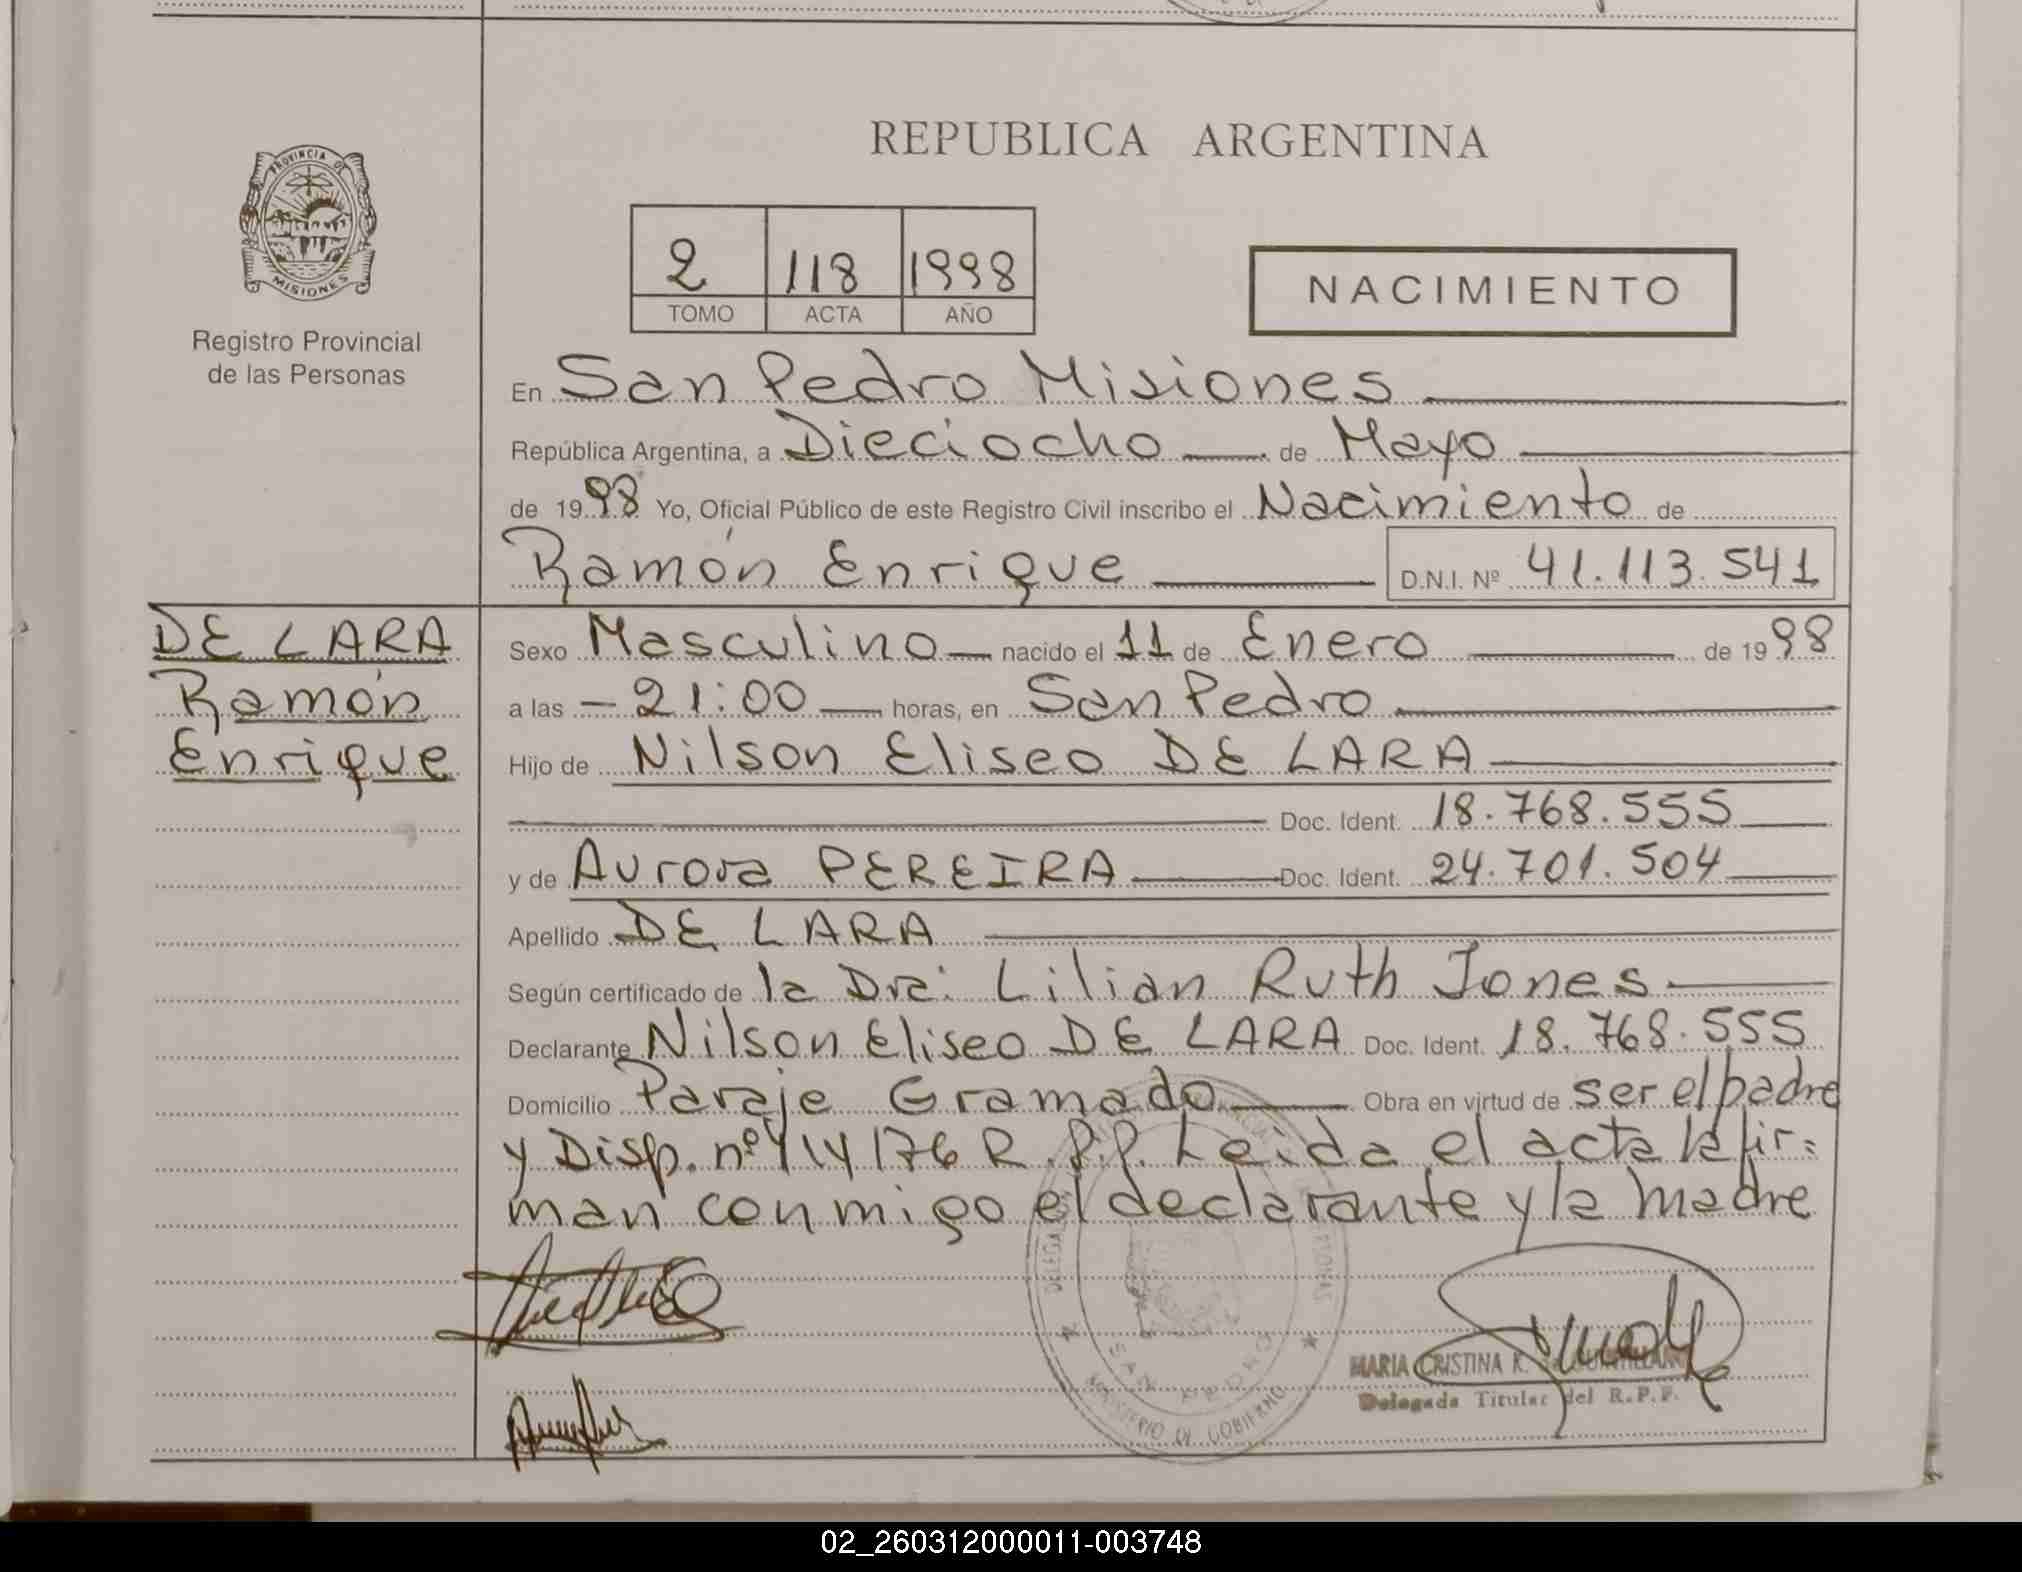 REPUBLICA ARGENTINA
PROVINCIA DE
MISIONES
Registro Provincial
de las Personas
2 118 1998
TOMO ACTA AÑO
NACIMIENTO
En San Pedro Misiones
República Argentina, a Dieciocho de Mayo
de 1998 Yo, Oficial Público de este Registro Civil inscribo el Nacimiento de
Ramón Enrique D.N.I. Nº 41.113.541
DE LARA
Ramón
Enrique
Sexo Masculino nacido el 11 de Enero de 1998
a las - 21:00 horas, en San Pedro
Hijo de Nilson Eliseo DE LARA
Doc. Ident. 18.768.555
y de Aurora PEREIRA Doc. Ident. 24.701.504
Apellido DE LARA
Según certificado de la Dra: Lilian Ruth Jones
Declarante Nilson Eliseo DE LARA Doc. Ident. 18.768.555
Domicilio Paraje Gramado Obra en virtud de ser el padre
y Disp. nº 414/76 R.P.P. Leida el acta la fir=
man conmigo el declarante y la madre
SAN PEDRO
MINISTERIO DE GOBIERNO
MARIA CRISTINA K. de
Delegada Titular del R.P.P.
02_260312000011-003748